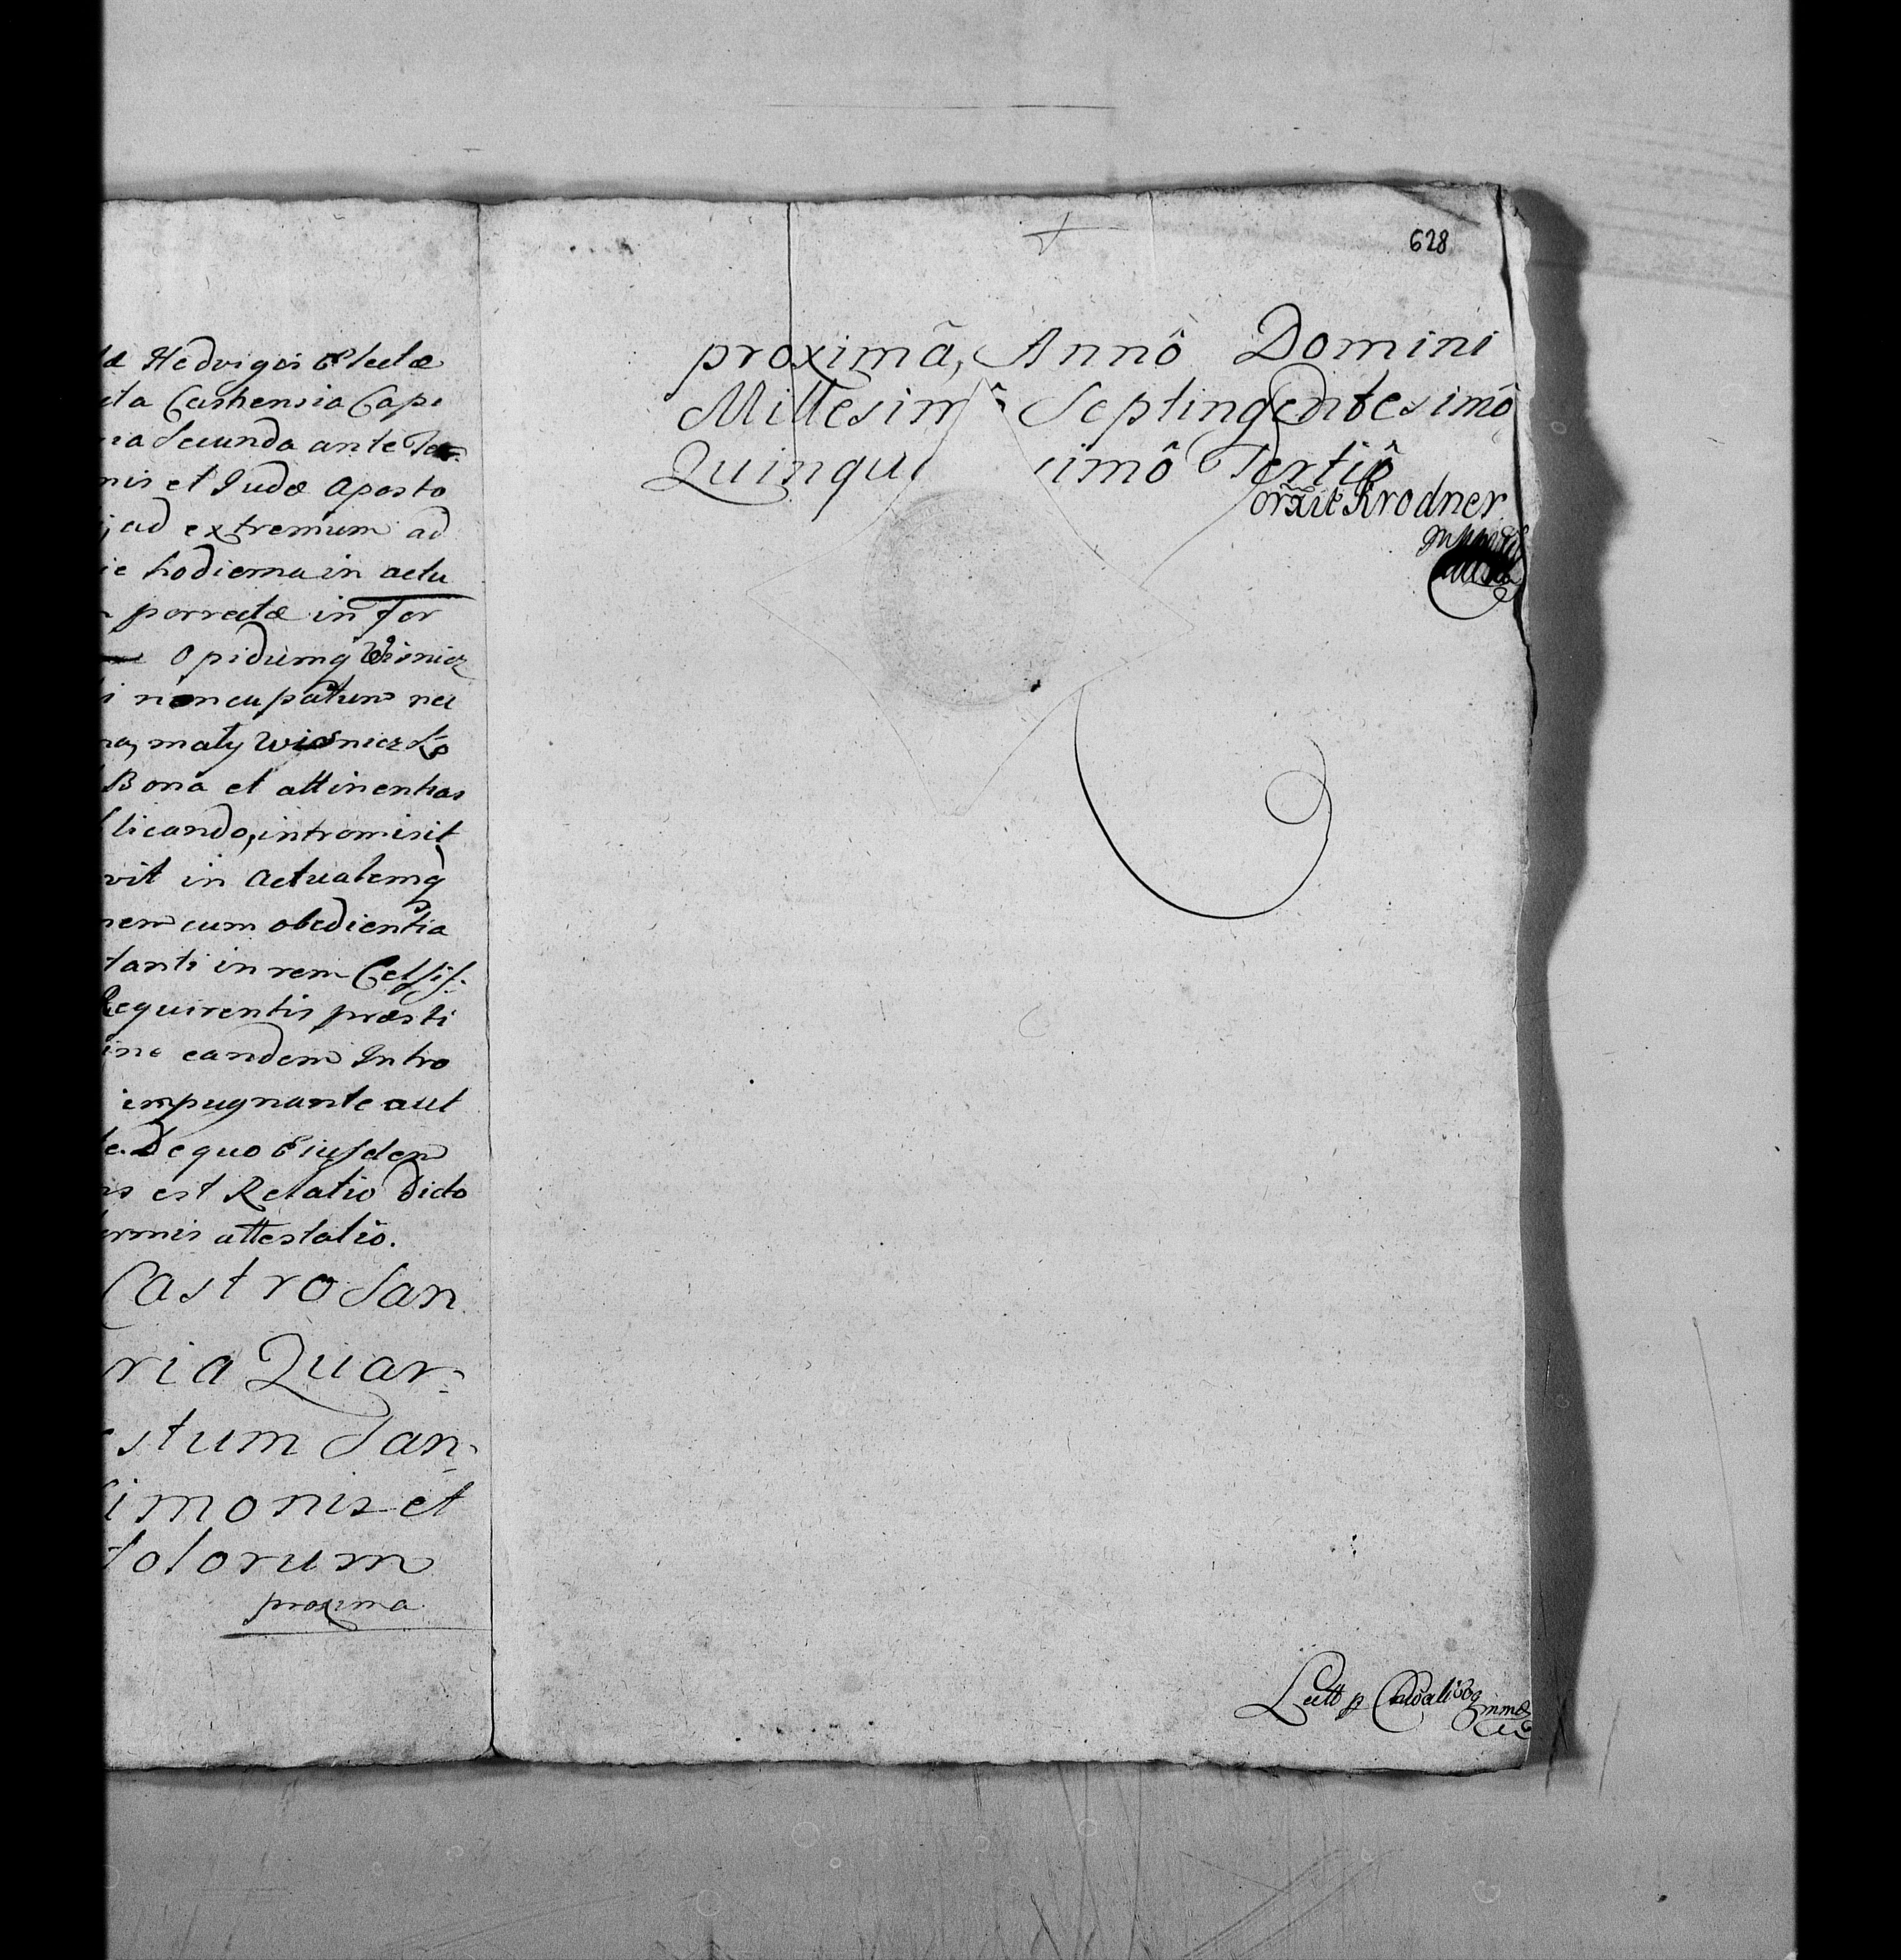 Hedvigis Electæ
Castrensia Capi
Secunda ante
et Judæ Aposto
ad extremum ad
hodierna in actu
porrectæ in for
Opidumq Wisnicz
noncupatum nec
maly Wisnicz
Bona et attinentias
licando, intromisit
vit in Actualemq
nem cum obedientia
tanti in rem Celsis:
Requirentis præsti
eandem Intro
impugnante aut
De quo Eiusdem
est Relatio dicto
attestatio.
Castro San
ria Quar=
stum San=
imonis et
tolorum
proxima
628
proximâ, Annô Domini
Millesim Septingentesimô
Quinqu simô Tertiô
Krodner
Lectt p